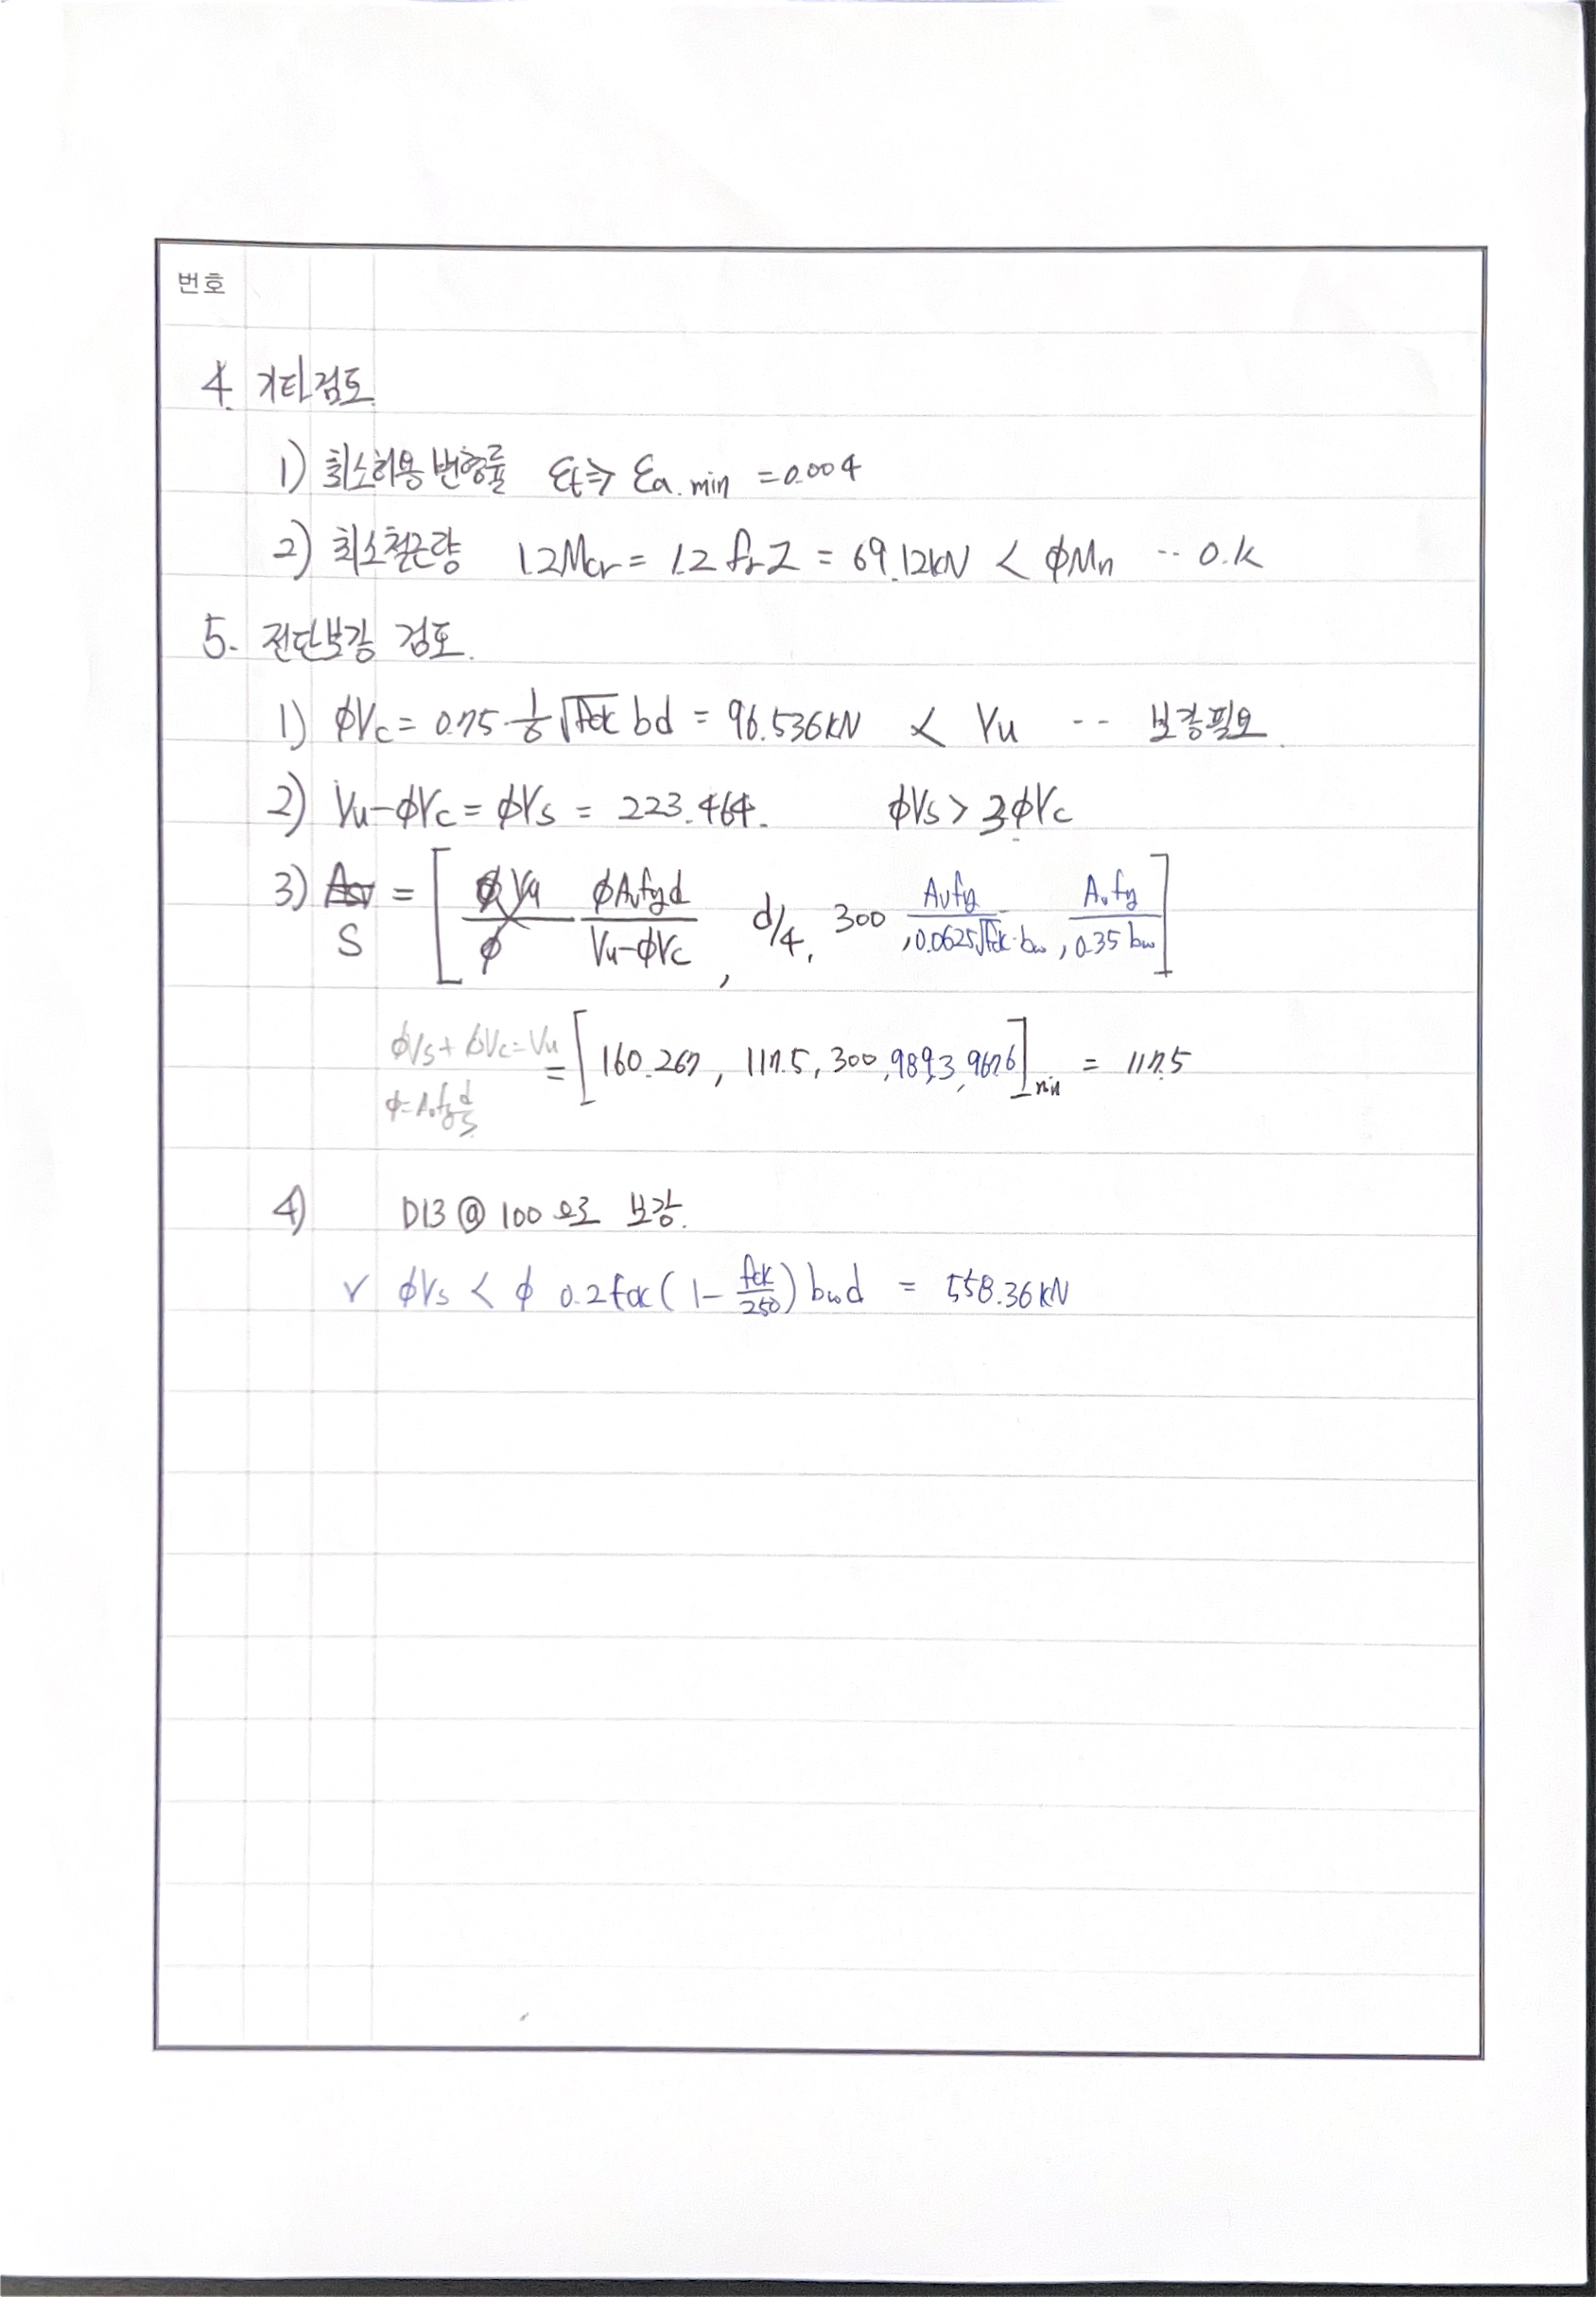 번호
4. 기타검토.
1) 최소허용변형률 εt ≥ εa.min = 0.004
2) 최소철근량 1.2Mcr = 1.2 fr Z = 69.12kN < φMn ·· O.K
5. 전단보강 검토.
1) φVc = 0.75 · 1/6 √fck bd = 96.536kN < Vu ·· 보강필요.
2) Vu-φVc = φVs = 223.464. φVs > 3φVc
3) S = [ φAvfyd / Vu-φVc , d/4, 300 , Avfy / 0.0625√fck·bw , Avfy / 0.35 bw ]
φVs + φVc = Vu
= [ 160.267, 117.5, 300, 989.3, 967.6 ]min = 117.5
φ = Avfy d/s
4) D13 @ 100 으로 보강.
√ φVs < φ 0.2fck ( 1 - fck/250 ) bwd = 558.36kN